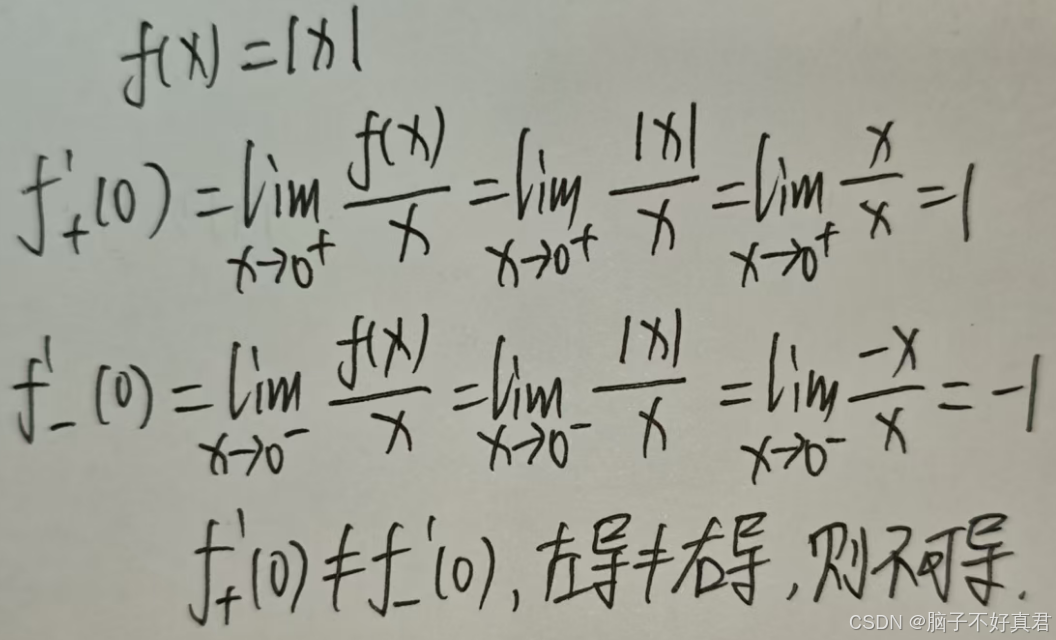 f(x)=|x|
f'₊(0)=lim_{x→0⁺} f(x)/x = lim_{x→0⁺} |x|/x = lim_{x→0⁺} x/x = 1
f'₋(0)=lim_{x→0⁻} f(x)/x = lim_{x→0⁻} |x|/x = lim_{x→0⁻} -x/x = -1
f'₊(0)≠f'₋(0), 左导≠右导,则不可导.
CSDN @脑子不好真君